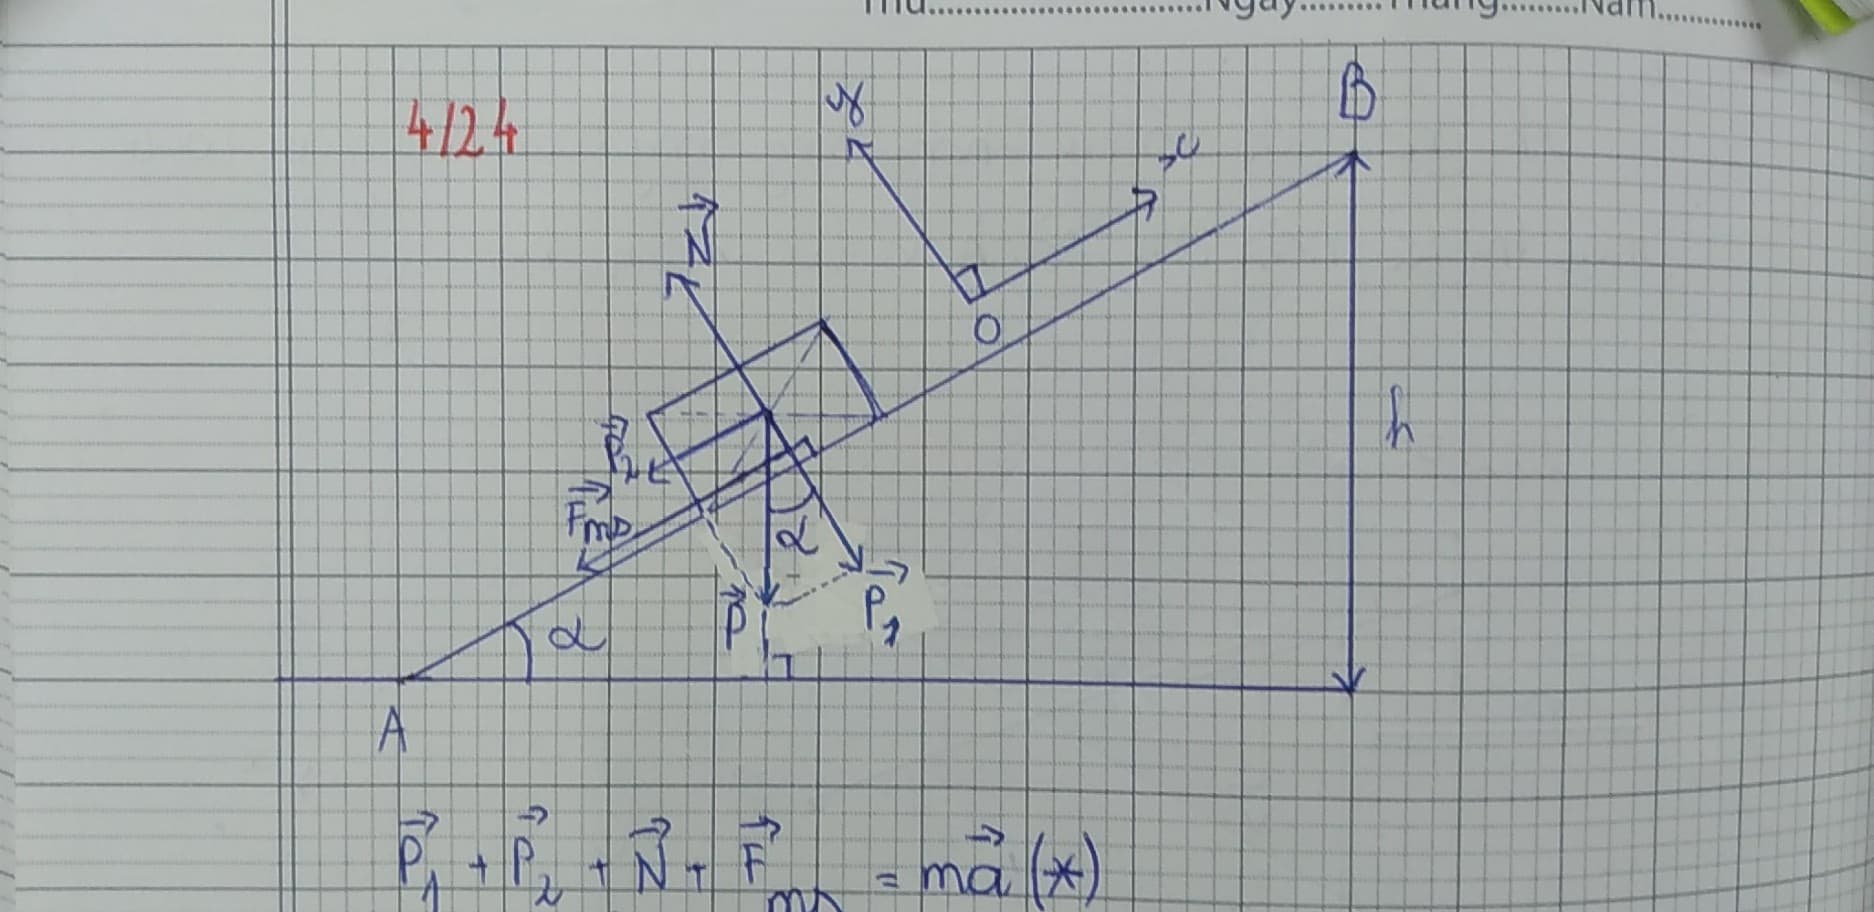 Thứ..............................Ngày.........Tháng.........Năm.............
4/24
B
y
x
N
O
h
P₂
Fms
α
P
P₁
α
A
P₁ + P₂ + N + Fms = ma (*)